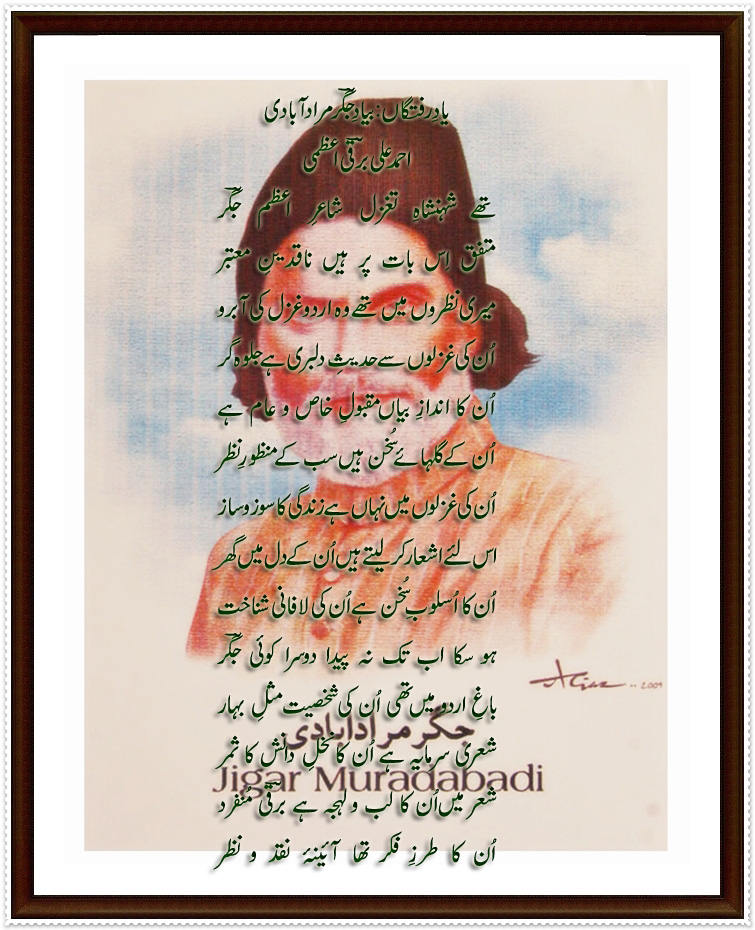 یادِ رفتگاں: بیادِ جگر مرادآبادی
احمد علی برقی اعظمی
تھے شہنشاہِ تغزل شاعرِ اعظم جگر
متفق اس بات پر ہیں ناقدینِ معتبر
میری نظروں میں تھے وہ اردو غزل کی آبرو
اُن کی غزلوں سے حدیثِ دلبری ہے جلوہ گر
اُن کا اندازِ بیاں مقبولِ خاص و عام ہے
اُن کے گلہائے سُخن ہیں سب کے منظورِ نظر
اُن کی غزلوں میں نہاں ہے زندگی کا سوز و ساز
اس لئے اشعار کرلیتے ہیں اُن کے دل میں گھر
اُن کا اُسلوبِ سُخن ہے اُن کی لافانی شناخت
ہو سکا اب تک نہ پیدا دوسرا کوئی جگر
2009
باغِ اردو میں تھی اُن کی شخصیت مثلِ بہار
جگر مرادابادی
شعری سرمایہ ہے اُن کا نخلِ دانش کا ثمر
Jigar Muradabadi
شعر میں اُن کا لب و لہجہ ہے برقی مُنفرد
اُن کا طرزِ فکر تھا آئینۂ نقد و نظر